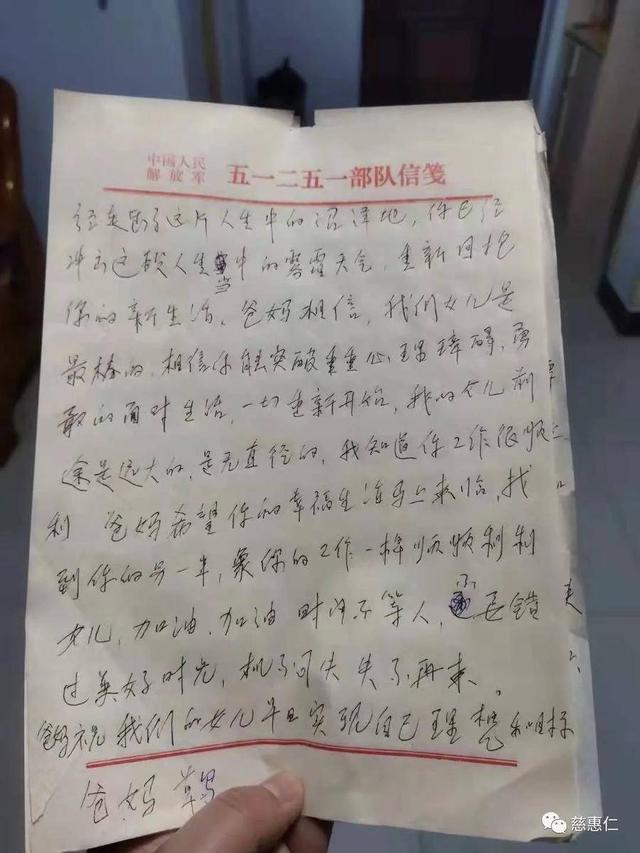 中国人民
解放军
五一二五一部队信笺
经走出了这片人生中的沼泽地，你已经
冲击这段人生当中的雾霾天空，重新
你的新生活。爸妈相信，我们女儿是
最棒的，相信你能突破重重心理障碍，勇
敢的面对生活，一切重新开始，我的女儿前
途是远大的，是无直径的，我知道你工作很顺
利 爸妈希望你的幸福生活马上来临，找
到你的另一半，象你的工作一样顺顺利利
女儿，加油，加油 时间不等人，不要错
过美好时光，机不可失失不再来。
爸妈祝我们的女儿早日实现自己理想和目标
爸妈草
慈惠仁